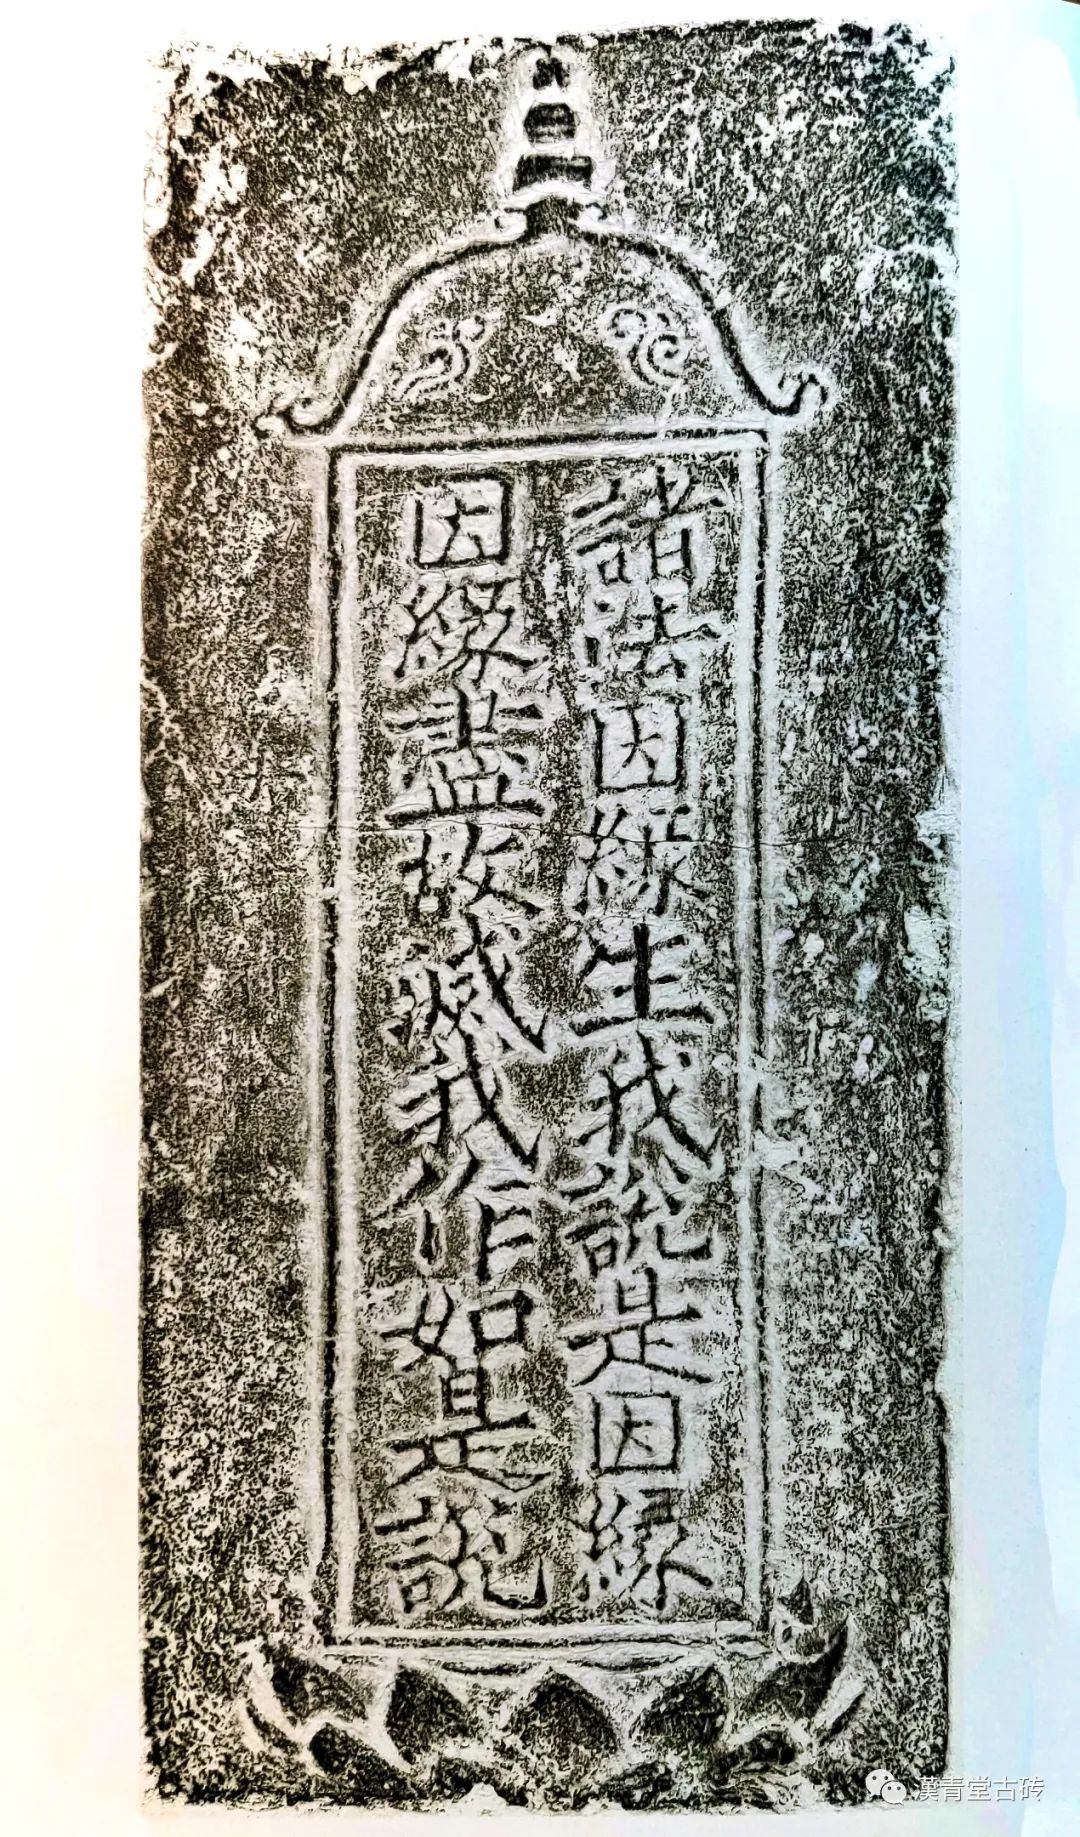 諸法因緣生我說是因緣
因緣盡故滅我作如是說
漢青堂古砖